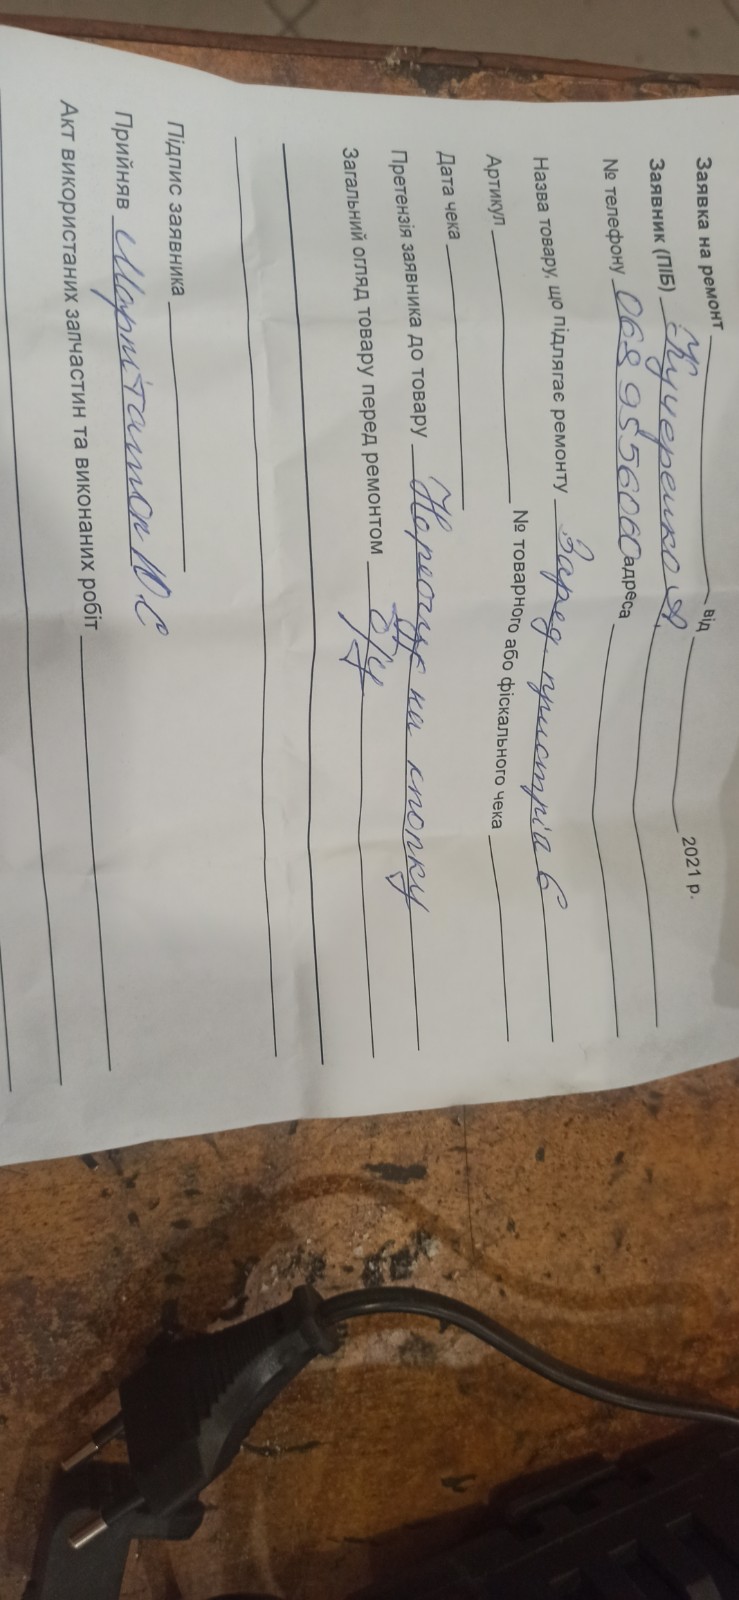 Заявка на ремонт від 2021 р.
Заявник (ПІБ) Кучеренко А,
№ телефону 068 9556060 адреса
Назва товару, що підлягає ремонту Заряд пристрія б
Артикул № товарного або фіскального чека
Дата чека
Претензія заявника до товару на кнопку
Загальний огляд товару перед ремонтом б/у
Підпис заявника
Прийняв Ю.С
Акт використаних запчастин та виконаних робіт